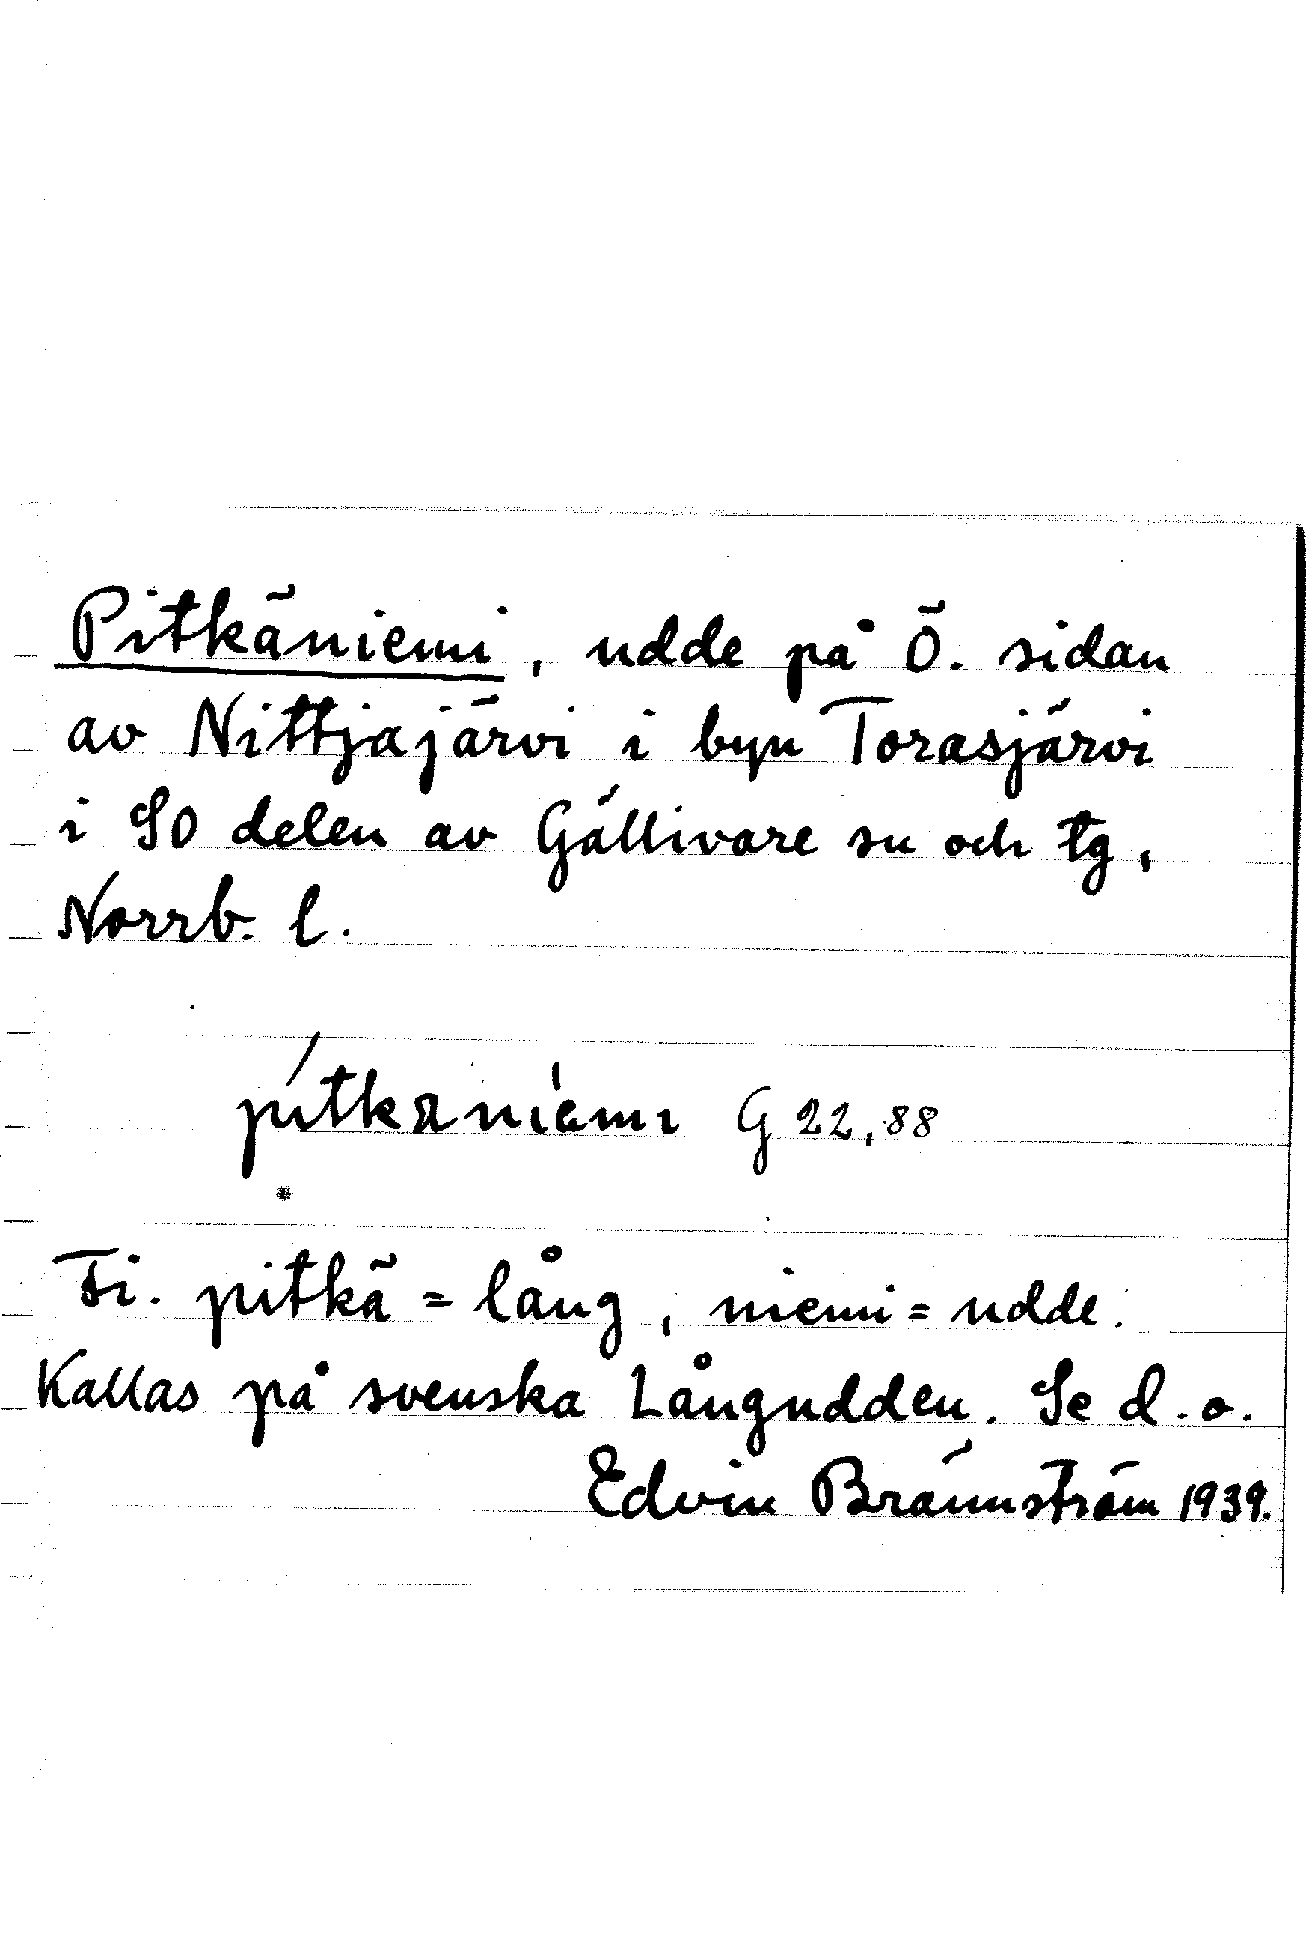 Pitkäniemi, udde på Ö. sidan
av Nittjajärvi i byn Torasjärvi
i SO delen av Gällivare sn och tg,
Norrb. l.
G 22,88
Fi. pitkä = lång, niemi = udde.
Kallas på svenska Långudden. Se d.o.
Edvin Brännström 1939.